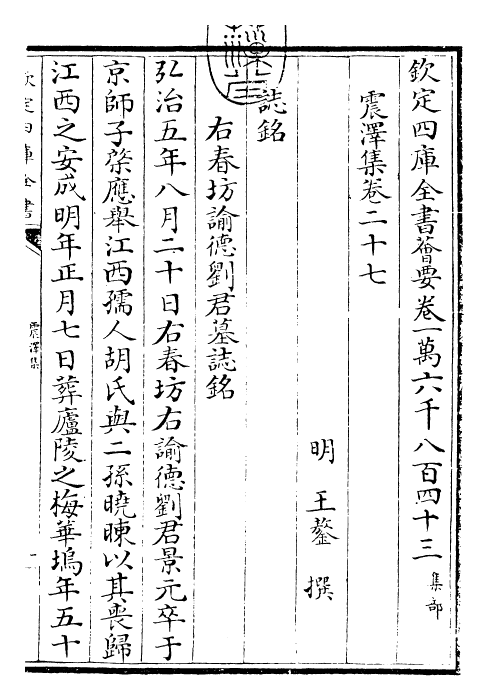 欽定四庫全書薈要卷一萬六千八百四十三 集部
震澤集卷二十七
明 王鏊 撰
誌銘
右春坊諭德劉君墓誌銘
弘治五年八月二十日右春坊右諭德劉君景元卒于
京師子棨應舉江西孺人胡氏與二孫曉暕以其喪歸
江西之安成明年正月七日葬廬陵之梅華塢年五十
欽定四庫全書
震澤集
一